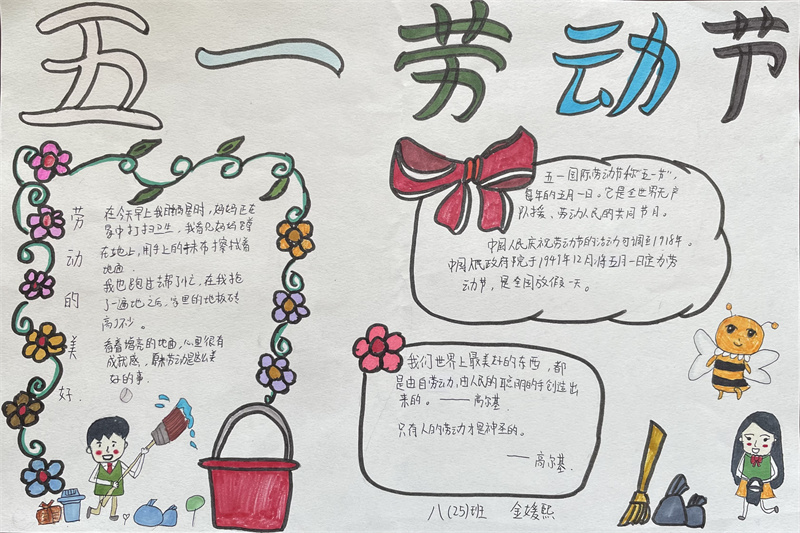 五一劳动节
劳动的美好.
在今天早上我睡醒时,妈妈正在
家中打扫卫生,我看见妈妈蹲
在地上,用手上的抹布擦拭着
地面.
我也跑过去帮了忙,在我拖
了一遍地之后,家里的地板砖
高了不少。
看着擦亮的地面,心里很有
成就感,原来劳动是这么美
好的事.
五一国际劳动节称"五一节",
每年的五月一日。它是全世界无产
队援、劳动人民的共同节日。
中国人民庆祝劳动节的活动可调至1918年。
中国人民政府院于1949年12月,将五月一日定力劳
动节,是全国放假一天。
我们世界上最美好的东西,都
是由自劳动,由人民的聪明的手创造出
来的。——高尔基.
只有人的劳动才是神圣的。
——高尔基.
八(25)班 金媛熙